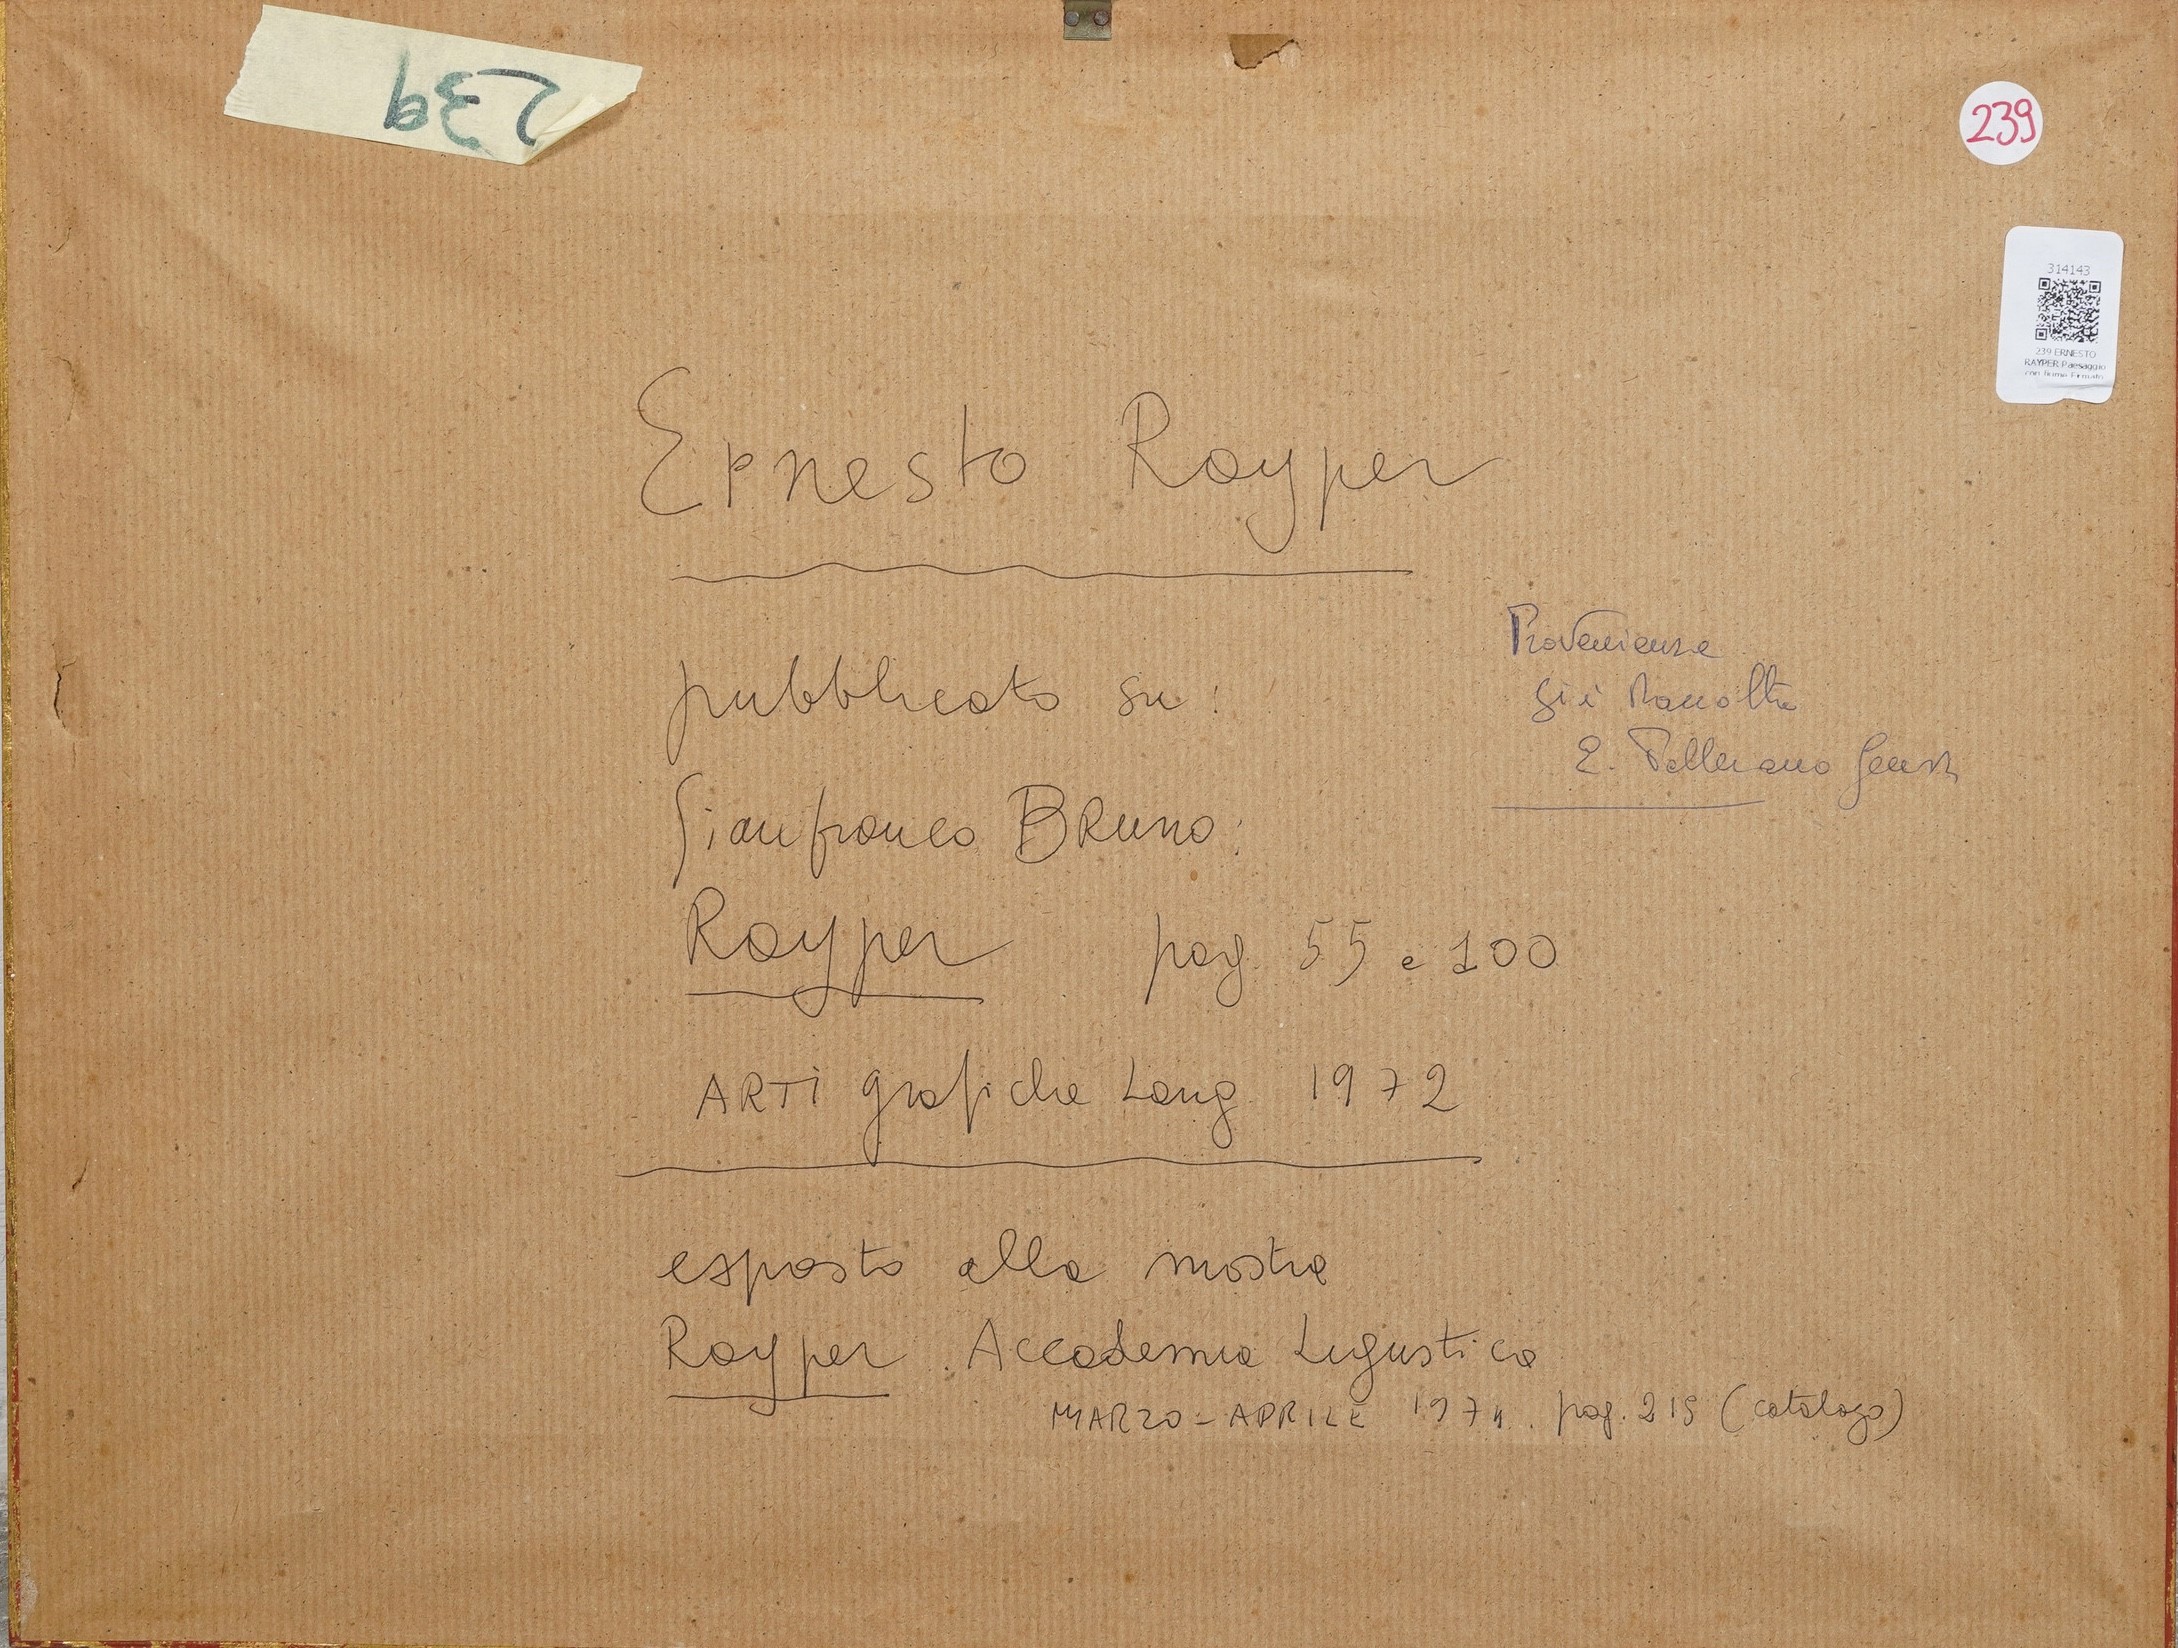 239
239
314143
239 ERNESTO
RAYPER Paesaggio
con fiume Firmato
Ernesto Rayper
pubblicato su:
Gianfranco BRUNO:
Rayper pag. 55 e 100
ARTI grafiche Lang 1972
esposto alla mostra
Rayper. Accademia Ligustica
MARZO-APRILE 197 pag. 219 (catalogo)
Provenienza
già Raccolta
E. Pellerano